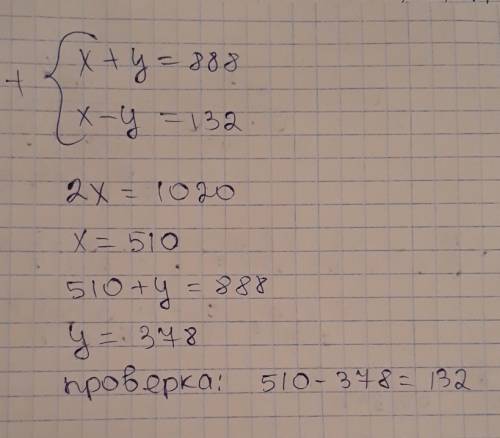 + { x + y = 888
x - y = 132
2x = 1020
x = 510
510 + y = 888
y = 378
проверка: 510 - 378 = 132